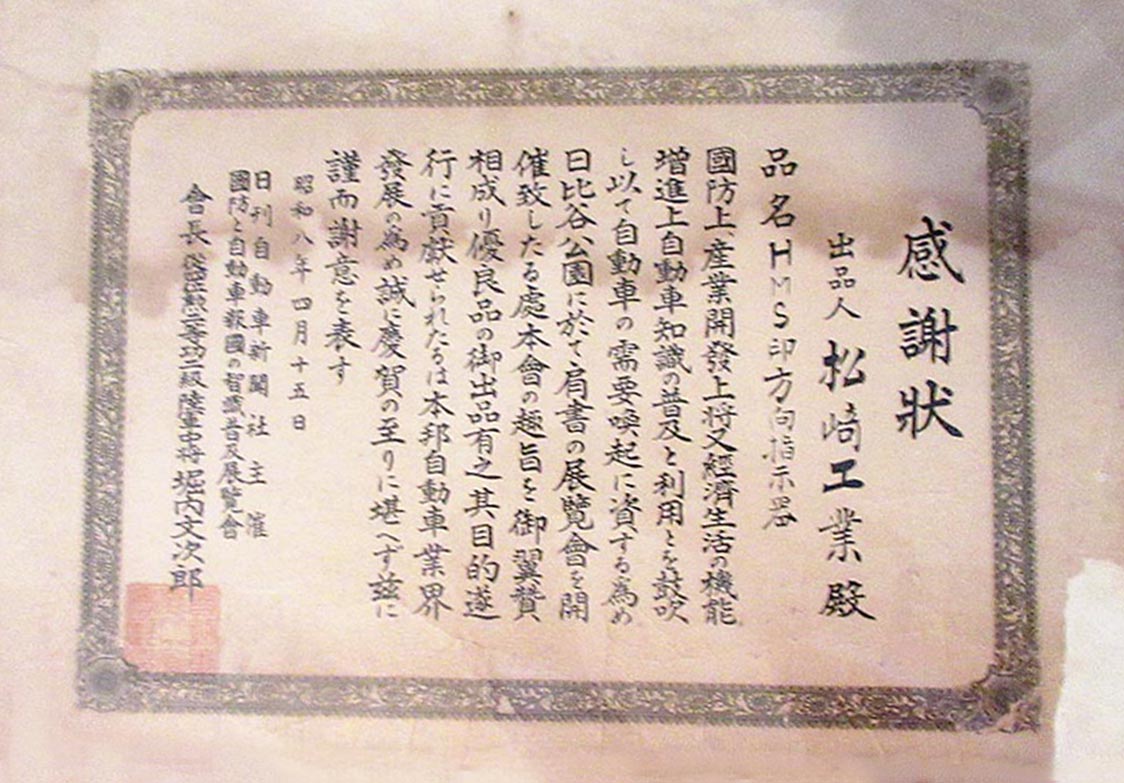 感謝狀
出品人 松崎工業殿
品名HMS印方向指示器
國防上、産業開發上將又經濟生活の機能
增進上自動車知識の普及と利用とを鼓吹
し以て自動車の需要喚起に資する為め
日比谷公園に於て肩書の展覽會を開
催致したる處本會の趣旨を御翼贊
相成り優良品の御出品有之其目的遂
行に貢獻せられたるは本邦自動車業界
發展の為め誠に慶賀の至りに堪へず茲に
謹而謝意を表す
昭和八年四月十五日
日刊自動車新聞社主催
國防と自動車報國の智識普及展覽會
會長 勲二等功二級陸軍中將 堀内文次郎